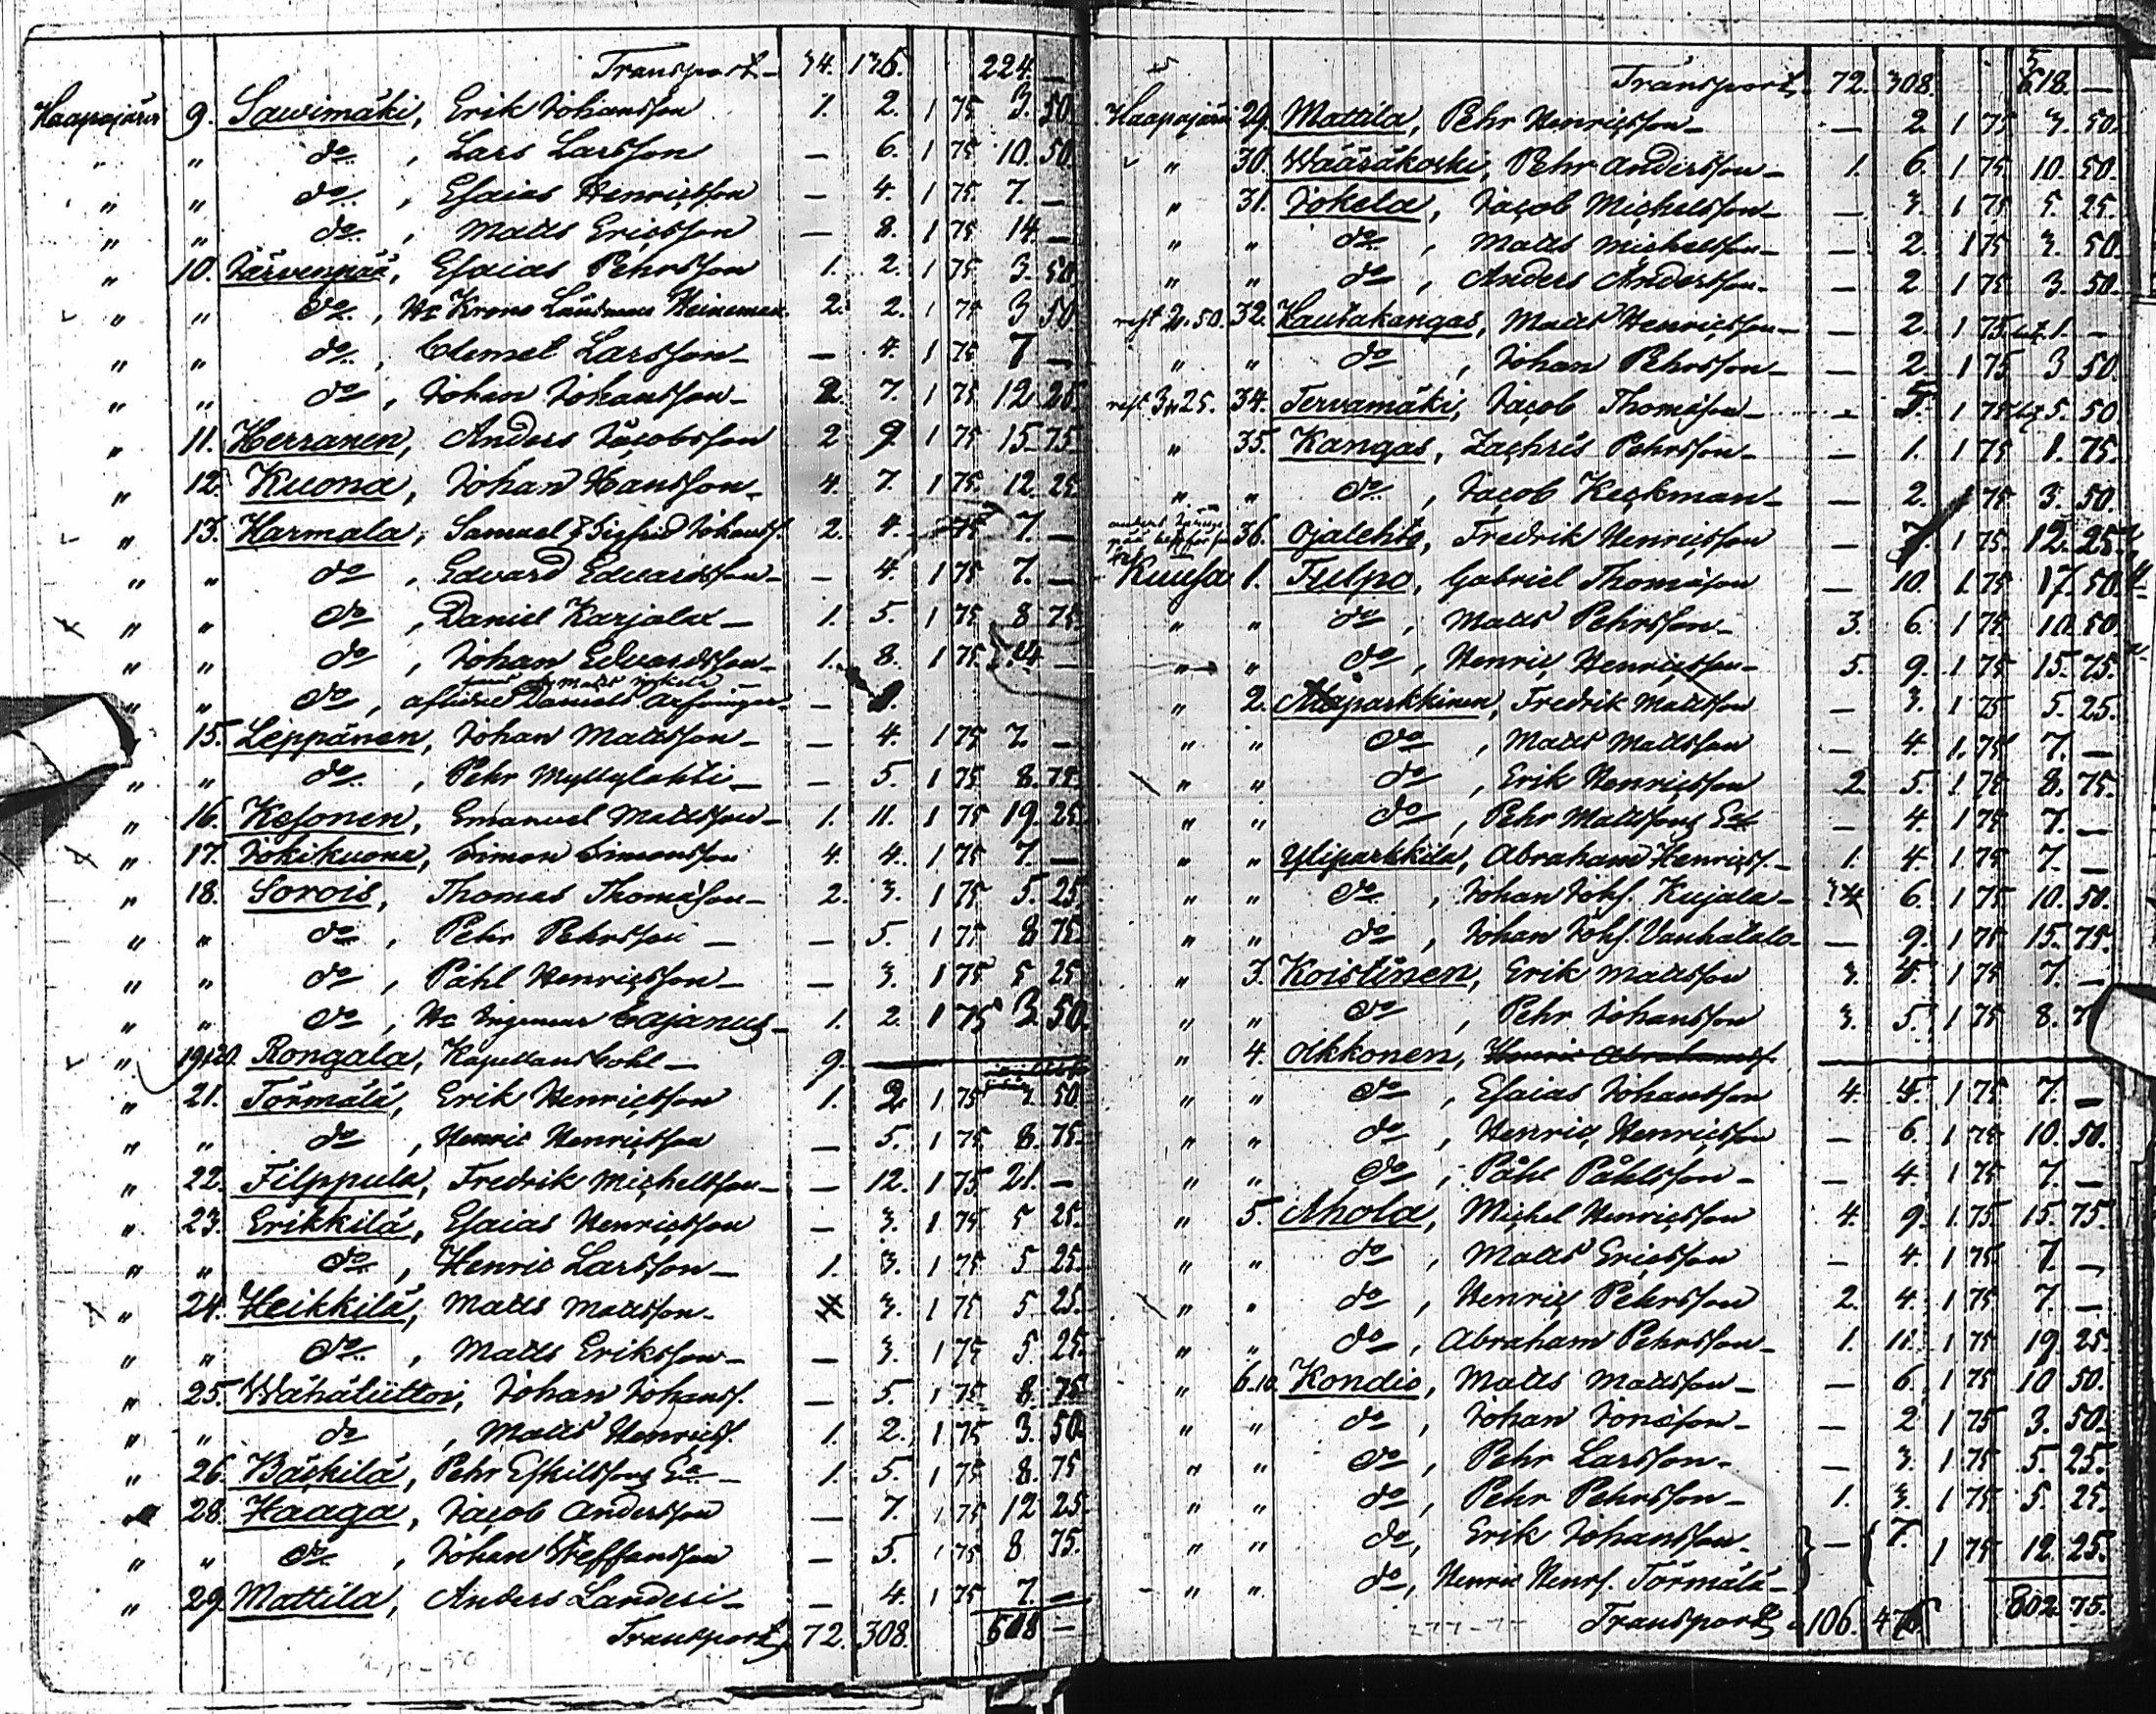 Transport 34. 136. 224. —
Haapajärvi 9. Sawimäki, Erik Johansson 1. 2. 1 75 3. 50.
" " do , Lars Larsson — 6. 1 75 10. 50.
" " do , Esaias Henricsson — 4. 1 75. 7. —
" " do , Matts Ericsson — 8. 1 75 14. —
" 10. Järvenpää, Esaias Pehrsson 1. 2. 1 75 3. 50.
" " do , Hr Krono Länsman Heineman. 2. 2. 1 75 3 50
" " do , Clemet Larsson — 4. 1 75 7 —
" " do , Johan Johansson 2. 7. 1 75 12 25.
" 11. Herranen, Anders Jacobsson 2 9 1 75 15. 75.
" 12. Kuona, Johan Hansson 4. 7. 1 75. 12. 25
" 13. Harmala, Samuel & Sigfrid Johanss. 2. 4. 7. —
" " do , Edvard Edvardsson — 4. 1 75 7. —
" " do , Daniel Karjala 1. 5. 1 75 8 75.
" " do , Johan Edvardsson 1. 8. 1 75. 14 —
" " do , aflidne Daniels Arfvingar —
" 15. Leppänen, Johan Mattsson — 4. 1 75 7. —
" " do , Pehr Myllylahti — 5. 1 75 8. 75.
" 16. Kesonen, Emanuel Mattsson 1. 11. 1 75 19. 25.
" 17. Jokikuona, Simon Simonsson 4. 4. 1 75 7. —
" 18. Sorois, Thomas Thomasson 2. 3. 1 75 5. 25.
" " do , Pehr Pehrsson — 5. 1 75 8 75.
" " do , Påhl Henricsson — 3. 1 75 5 25
" " do , Hr Ingenieur Cajanus 1. 2. 1 75 3. 50.
" 19.20. Rongala, Kapellans bohl 9. —
" 21. Törmälä, Erik Henricsson 1. 2 1 75 3. 50
" " do , Henric Henricsson — 5. 1 75. 8. 75.
" 22. Filppula, Fredrik Michelsson — 12. 1 75 21. —
" 23. Erikkilä, Esaias Henricsson — 3. 1 75. 5 25.
" " do , Henric Larsson 1. 3. 1 75. 5 25.
" 24. Heikkilä, Matts Mattsson 3. 1 75 5. 25.
" " do , Matts Eriksson — 3. 1 75 5. 25.
" 25. Wähäliitton, Johan Johanss. — 5. 1 75. 8. 75
" " do , Matts Henricss. 1. 2. 1 75 3. 50.
" 26. Bäckilä, Pehr Eskilssons Ea 1. 5. 1 75 8. 75
" 28. Haaga, Jacob Andersson — 7. 1 75 12 25.
" " do , Johan Steffansson — 5. 1 75 8 75.
" 29. Mattila, Anders Landeri — 4. 1 75 7. —
Transport 72. 308. 518 —
Transport 72. 308. 518. —
Haapajärvi 29. Mattila, Pehr Henricsson — 2. 1 75 3. 50.
" 30. Wääräkoski, Pehr Andersson 1. 6. 1 75. 10. 50.
" 31. Jokela, Jacob Michelsson — 3. 1 75 5. 25.
" " do , Matts Michelsson — 2. 1 75 3. 50.
" " do , Anders Andersson — 2 1 75 3. 50.
rest 2. 50. 32. Kautakangas, Matts Henricsson — 2. 1 75 1. —
" " do , Johan Pehrsson — 2. 1 75 3 50.
rest 3. 25. 34. Tervamäki, Jacob Thomasson — 5. 1 75 5. 50
" 35. Kangas, Zachris Pehrsson — 1. 1 75 1. 75.
" " do , Jacob Keckman — 2. 1 75 3. 50.
36. Ojalehto, Fredrik Henricsson — 7. 1 75. 12. 25.
Kuusa 1. Tulpo, Gabriel Thomasson — 10. 1 75 17. 50.
" " do , Matts Pehrsson 3. 6. 1 75 10. 50.
" " do , Henric Henricsson 5. 9. 1 75 15. 75.
" 2. Alaparkkinen, Fredrik Mattsson — 3. 1 75 5. 25.
" " do , Matts Mattsson — 4. 1. 75 7. —
" " do , Erik Henricsson 2. 5. 1 75 8. 75.
" " do , Pehr Mattssons Ea — 4. 1 75 7. —
" " Yliparkkila, Abraham Henricss. 1. 4. 1 75 7. —
" " do , Johan Johs. Kujala 6. 1 75 10. 50.
" " do , Johan Johs. Vanhatalo — 9. 1 75 15. 75.
" 3. Koistinen, Erik Mattsson 3. 4. 1 75 7. —
" " do , Pehr Johansson 3. 5. 1 75 8. 7
" 4. Olkkonen, Henric Abrahamss. —
" " do , Esaias Johansson 4. 4. 1 75 7. —
" " do , Henric Henricsson — 6. 1 75 10. 50.
" " do , Påhl Påhlsson — 4. 1 75 7. —
" 5. Ahola, Michel Henricsson 4. 9. 1. 75 15. 75.
" " do , Matts Ericsson — 4. 1 75. 7. —
" " do , Henric Pehrsson 2. 4. 1 75 7. —
" " do , Abraham Pehrsson 1. 11. 1 75 19. 25.
" 6.10. Kondio, Matts Mattsson — 6. 1 75 10 50.
" " do , Johan Jonasson — 2 1 75 3. 50.
" " do , Pehr Larsson — 3. 1 75 5. 25.
" " do , Pehr Pehrsson 1. 3. 1 75 5 25.
" " do , Erik Johansson — 7. 1 75 12. 25.
" " do , Henric Henrs. Törmälä
Transport 106. 476 802. 75.